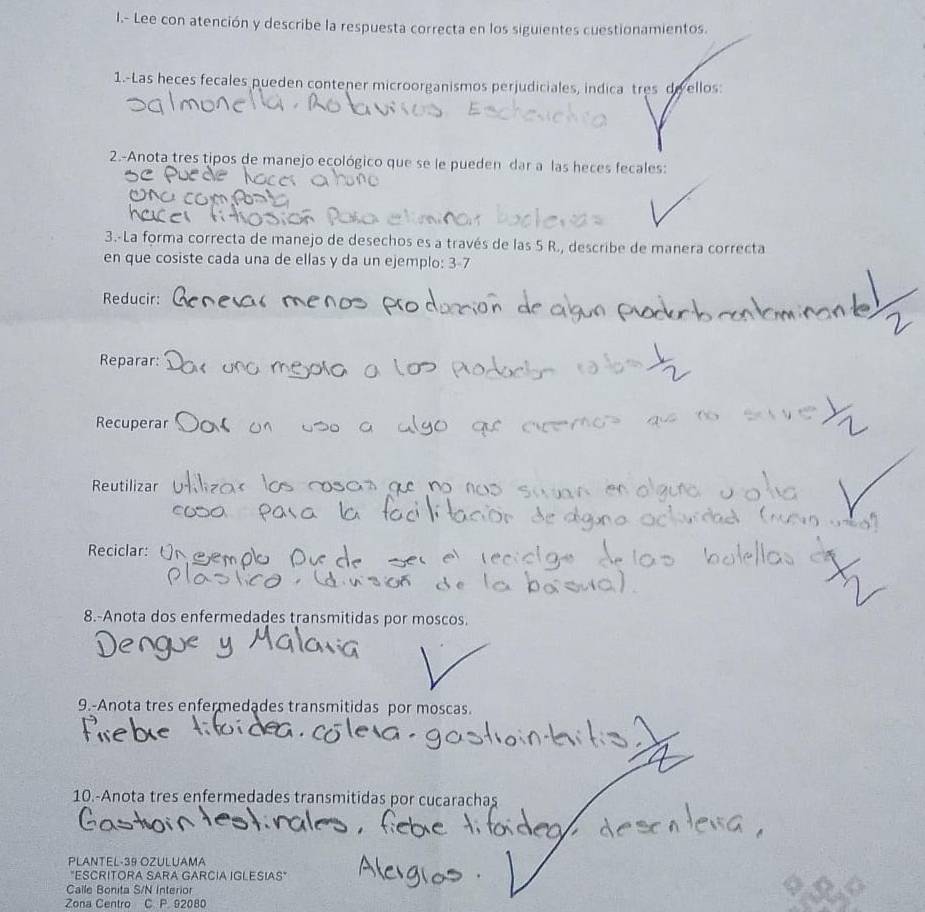 I.- Lee con atención y describe la respuesta correcta en los siguientes cuestionamientos.
1.-Las heces fecales pueden contener microorganismos perjudiciales, indica tres de ellos:
Salmonella. Rotavirus Escherichea
2.-Anota tres tipos de manejo ecológico que se le pueden dar a las heces fecales:
se puede hacer abono
una composta
hacer para eliminar bacterias
3.-La forma correcta de manejo de desechos es a través de las 5 R., describe de manera correcta
en que cosiste cada una de ellas y da un ejemplo: 3-7
Reducir: Generar menos de algun producto contaminante 1/2
Reparar: Dar una a los 1/2
Recuperar Dar un uso a algo que que no sirve 1/2
Reutilizar Utilizar las cosas que no nos sirvan en alguna
cosa para la facilitacion de alguna actividad
Reciclar: Un puede ser el de las botellas de
plastico. de la 1/2
8.-Anota dos enfermedades transmitidas por moscos.
Dengue y Malaria
9.-Anota tres enfermedades transmitidas por moscas.
tifoidea. cólera. 1/2
10.-Anota tres enfermedades transmitidas por cucarachas
Gastrointestinales, fiebre tifoidea,
Alergias.
PLANTEL-39 OZULUAMA
"ESCRITORA SARA GARCIA IGLESIAS"
Calle Bonita S/N Interior
Zona Centro C. P. 92080